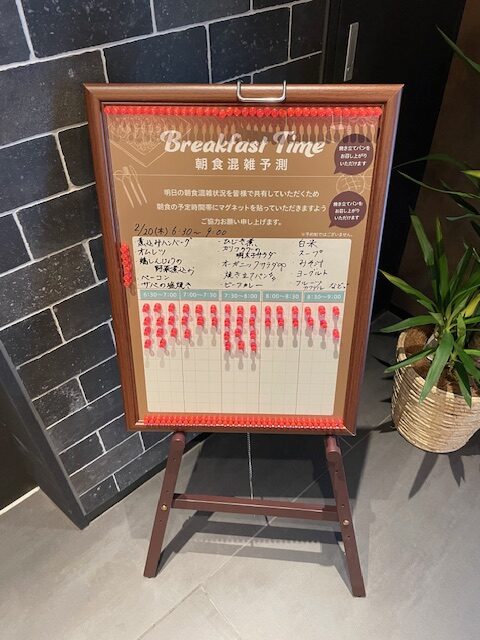 Breakfast Time
朝食混雑予測
焼き立てパンを
お召し上がり
いただけます
明日の朝食混雑状況を皆様で共有していただくため
朝食の予定時間帯にマグネットを貼っていただきますよう
ご協力お願い申し上げます。
焼き立てパンを
お召し上がり
いただけます
※予約制ではございません。
2/20(木) 6:30~9:00
煮込みハンバーグ
オムレツ
鶏しんじょうの
野菜煮込み
ベーコン
サバの塩焼き
・ひじき煮
カリフラワーの
明太子サラダ
オーガニックサラダ
焼き立てパン
ビーフカレー
白米
スープ
みそ汁
ヨーグルト
フルーツ
など。
6:30~7:00 7:00~7:30 7:30~8:00 8:00~8:30 8:30~9:00